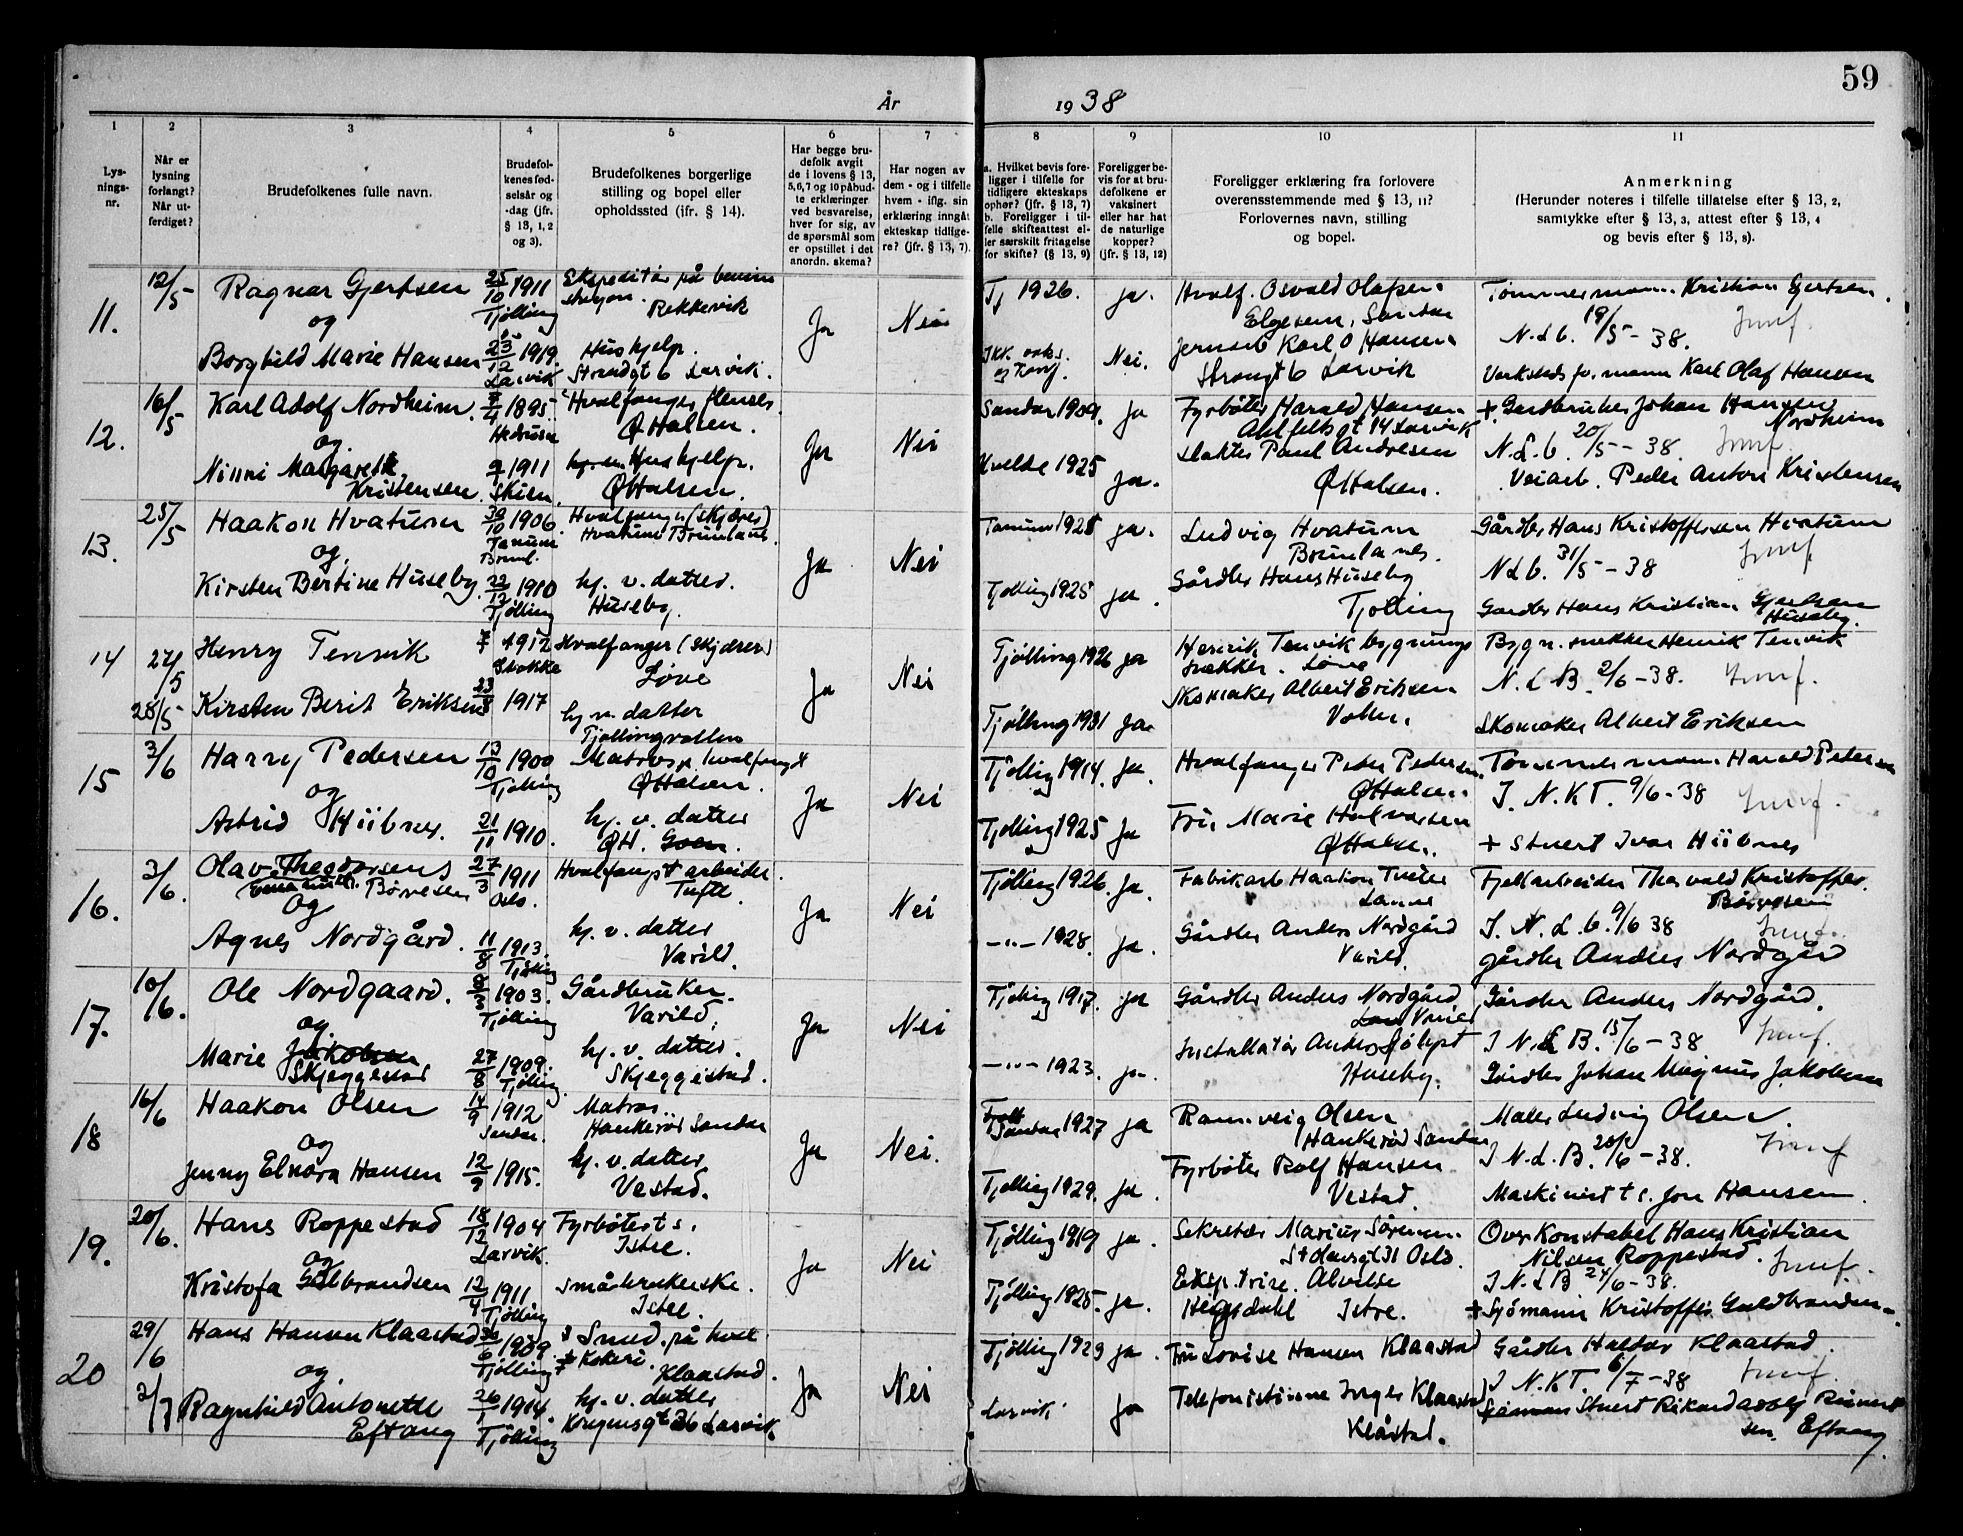 59
År 1938
1 2 3 4 5 6 7 8 9 10 11
Lys-
nings-
nr.
Når er
lysning
forlangt?
Når ut-
ferdiget?
Brudefolkenes fulle navn.
Brudefol-
kenes fød-
selsår og
-dag (jfr.
§ 13, 1, 2
og 3).
Brudefolkenes borgerlige
stilling og bopel eller
opholdssted (ifr. § 14).
Har begge bru-
defolk avgit
de i lovens § 13,
5,6,7 og 10 påbud-
te erklæringer
ved besvarelse,
hver for sig, av
de spørsmål som
er opstillet i det
anordn. skema?
Har nogen av
dem - og i tilfelle
hvem - iflg. sin
erklæring inngått
ekteskap tidlige-
re? (jfr. § 13, 7).
a. Hvilket bevis fore-
ligger i tilfelle for
tidligere ekteskaps
ophør? (jfr. § 13, 7)
b. Foreligger i til-
felle skifteattest el-
ler særskilt fritagelse
for skifte? (§ 13, 9)
Foreligger be-
vis for at bru-
defolkene er
vaksinert
eller har hat
de naturlige
kopper?
(jfr. § 13, 12)
Foreligger erklæring fra forlovere
overensstemmende med § 13, 11?
Forlovernes navn, stilling
og bopel.
Anmerkning
(Herunder noteres i tilfelle tillatelse efter § 13, 2,
samtykke efter § 13, 3, attest efter § 13, 4
og bevis efter § 13, 8).
11. 12/5 Ragnar Gjertsen 25/10 1911 Tjølling Ekspeditør på bensin
Rekkevik Ja Nei Tj 1926. ja. Hvalf. Osvald Olafsen
Elgesem, Sandar Tømmermann Kristian Gjertsen.
og N.L.b. 19/5-38.
Borghild Marie Hansen 23/12 1919. Larvik Hushjelp.
Strandgt 6 Larvik. Nei. Karl O Hansen
6 Larvik Karl Olaf Hansen
12. 16/5 Karl Adolf Nordheim 1895 Hedrum Hvalfanger
Ø Halsen. Ja Nei Sandar 1909. Ja Fyrbøter Harald Hansen
14 Larvik + Gardbruker Johan Hansen
Nordheim
og N.L.b. 20/5-38.
Ninni Margareth
Kristensen 1911 Skien. Hushjelp.
Ø Halsen. Kvelde 1925 Ja. Slakter Paul Andresen
Ø Halsen. Veiarb. Peder Anton Kristensen
13. 25/5 Haakon Hvatum 30/10 1906 Tanum
Brunl. Hvalfanger (skytter)
Hvatum Brunlanes. Ja Nei Tanum 1925 ja. Ludvig Hvatum
Brunlanes. Gårdbr Hans Kristoffersen Hvatum
og N.L.b. 31/5-38
Kirsten Bertine Huseby. 22/12 1910 Tjølling hj. v. datter.
Huseby. Tjølling 1925 ja. Gårdbr Hans Huseby
Tjølling Gardbr Hans Kristian Gjertsen
Huseby.
14 27/5 Henry Tenvik 1912 Stokke Hvalfanger (skytter)
Løve Ja Nei Tjølling 1926 ja Henrik Tenvik bygnings
snekker. Løve Bygn. snekker Henrik Tenvik
N.L.B. 2/6-38.
28/5 Kirsten Berit Eriksen 23/8 1917 hj v. datter
Tjøllingvollen Tjølling 1931 Ja Skomaker Albert Eriksen
Skomaker Albert Eriksen
15 3/6 Harry Pedersen 13/10 1900 Tjølling Matros p. hvalfangst
Ø Halsen. Ja Nei Tjølling 1914. Ja. Hvalfanger Peder Pedersen.
Ø Halsen. Tømmermann Harald Pedersen
og I. N.K.T. 9/6-38
Astrid Hübner. 21/11 1910. hj. v. datter
Ø H. Tjølling 1925 Ja Fru Marie Halvorsen
Ø Halsen. + Stuert Ivar Hübner
16. 3/6 Olav Theodorsen
Børresen 27/3 1911 Oslo. Hvalfangstarbeider.
Tufte. Ja Nei Tjølling 1926. Ja. Fabrikarb Haakon Tveter
Fjellarbeider Thorvald Kristoffer.
Børresen
og I. N.L.b. 9/6 38
Agnes Nordgård. 11/8 1913. Tjølling hj. v. datter
Varild. —"— 1928. ja. Gårdbr Anders Nordgård
Varild. gårdbr Anders Nordgård
17. 10/6. Ole Nordgaard. 1903. Tjølling Gårdbruker.
Varild. Ja Nei Tjølling 1917. ja Gårdbr Anders Nordgård
Varild Gårdbr Anders Nordgård.
og I N.L.B. 15/6-38
Marie Jakobsen
Skjeggestad 27/8 1909. Tjølling hj. v. datter.
Skjeggestad. —"— 1923. ja. Installatør Anders
Huseby. Gårdbr Johan Magnus Jakobsen
18 16/6 Haakon Olsen 14/9 1912 Sandar. Matros.
Hankerød Sandar Ja Nei. Sandar 1927 ja Rannveig Olsen
Hankerød Sandar Maler Ludvig Olsen
og I N.L.B. 20/6-38.
Jenny Elnora Hansen 12/9 1915. hj. v. datter
Vestad. Tjølling 1929. ja. Fyrbøter Rolf Hansen
Vestad. Maskinist t s. Jon Hansen.
19. 20/6. Hans Roppestad 18/12 1904 Larvik. Fyrbøter t s.
Istre. Ja Nei Tjølling 1919 ja. Sekretær Marius Sørensen.
31 Oslo. Overkonstabel Hans Kristian
Nilsen Roppestad.
og I N.L.B 24/6-38.
Kristofa Gulbrandsen 12/4 1911 Tjølling Småbrukerske.
Istre. Tjølling 1925. ja. Eksp.trise. Alvilde
Hegdahl Istre. + Sjømann Kristoffer Guldbrandsen.
20 29/6 Hans Hansen Klaastad 1909 Tjølling Smed. på hval
kokeri. Klaastad. Ja Nei Tjølling 1923 ja. Fru Lovise Hansen Klaastad Gårdbr Halvor Klaastad.
og I N.K.T 6/7-38
2/7 Ragnhild Antonette
Eftang 26/1 1914. Tjølling hj. v. datter
Kongensgt 36 Larvik. Larvik. Ja Telefonistinne Inger Klaastad
Klåstad. Stuert Rikard Adolf Reinert
sen. Eftang